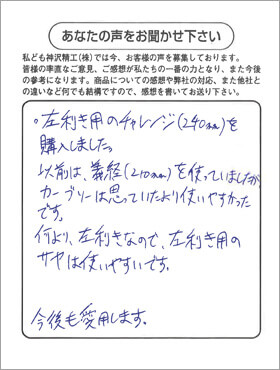 あなたの声をお聞かせ下さい
私ども神沢精工(株)では今、お客様の声を募集しております。
皆様の率直なご意見、ご感想が私たちの一番の力となり、また今後
の参考になります。商品についての感想や弊社の対応、また他社と
の違いなど何でも結構ですので、感想を書いてお送り下さい。
。左利き用のチャレンジ(240mm)を
購入しました。
以前は、義経(210mm)を使っていましたが
カーブソーは思っていたより使いやすかった
です。
何より、左利きなので、左利き用の
サヤは使いやすいです。
今後も愛用します。